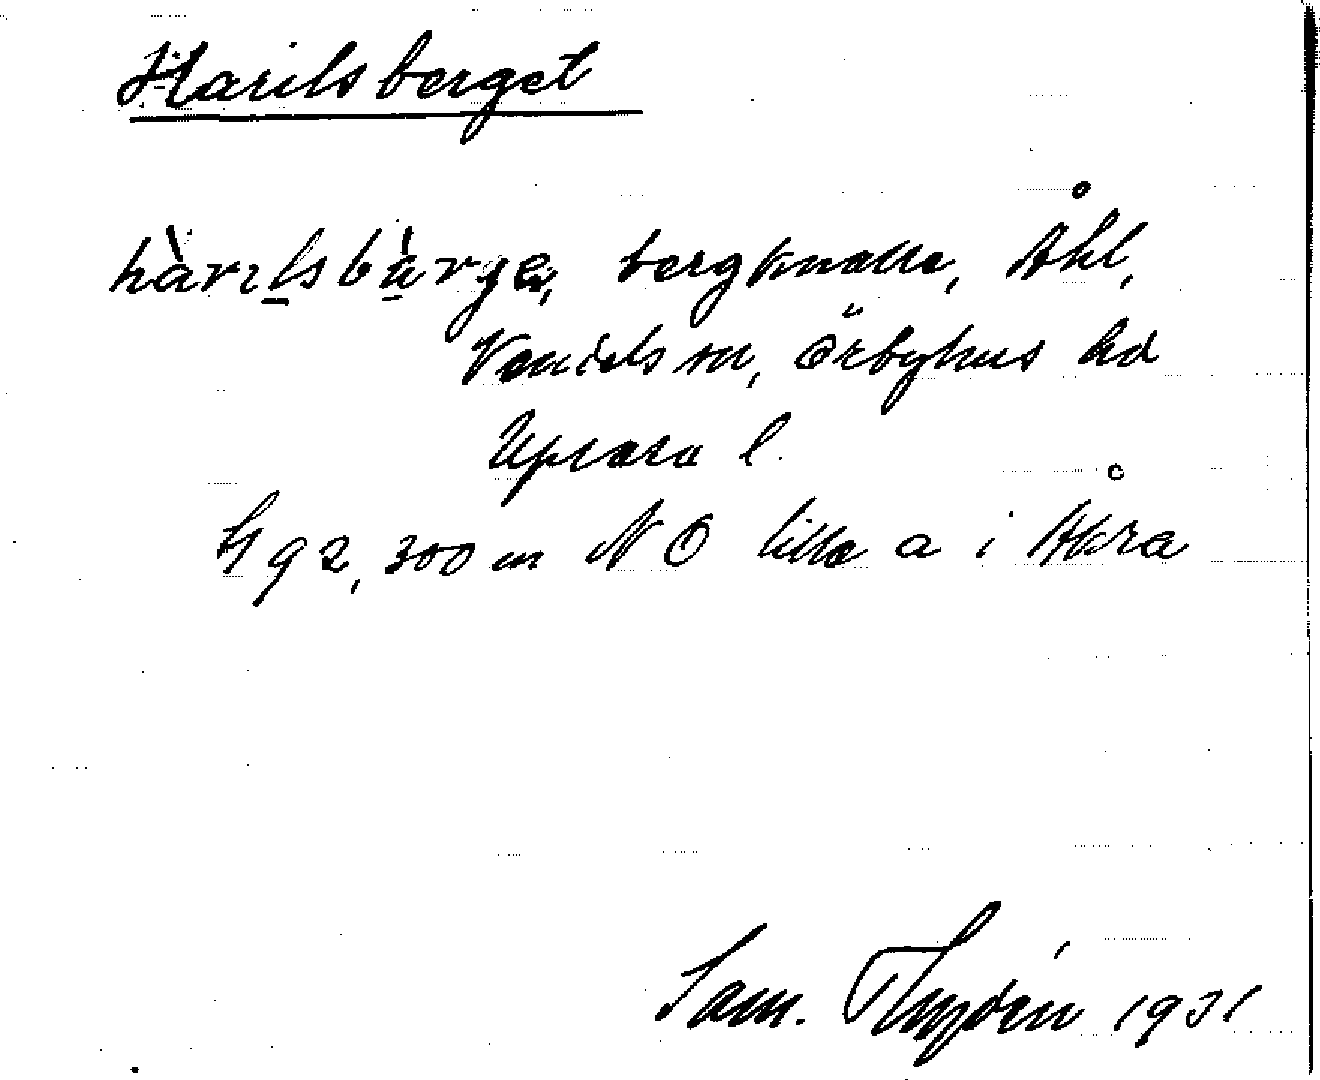 Harilsberget
hàrilsbàrge, bergknalle, Åkl,
Vendels sn, Örbyhus hd
Uppsala l.
Hg 2, 300 m NO lilla a i Åkra
Sam. Thyrén 1931